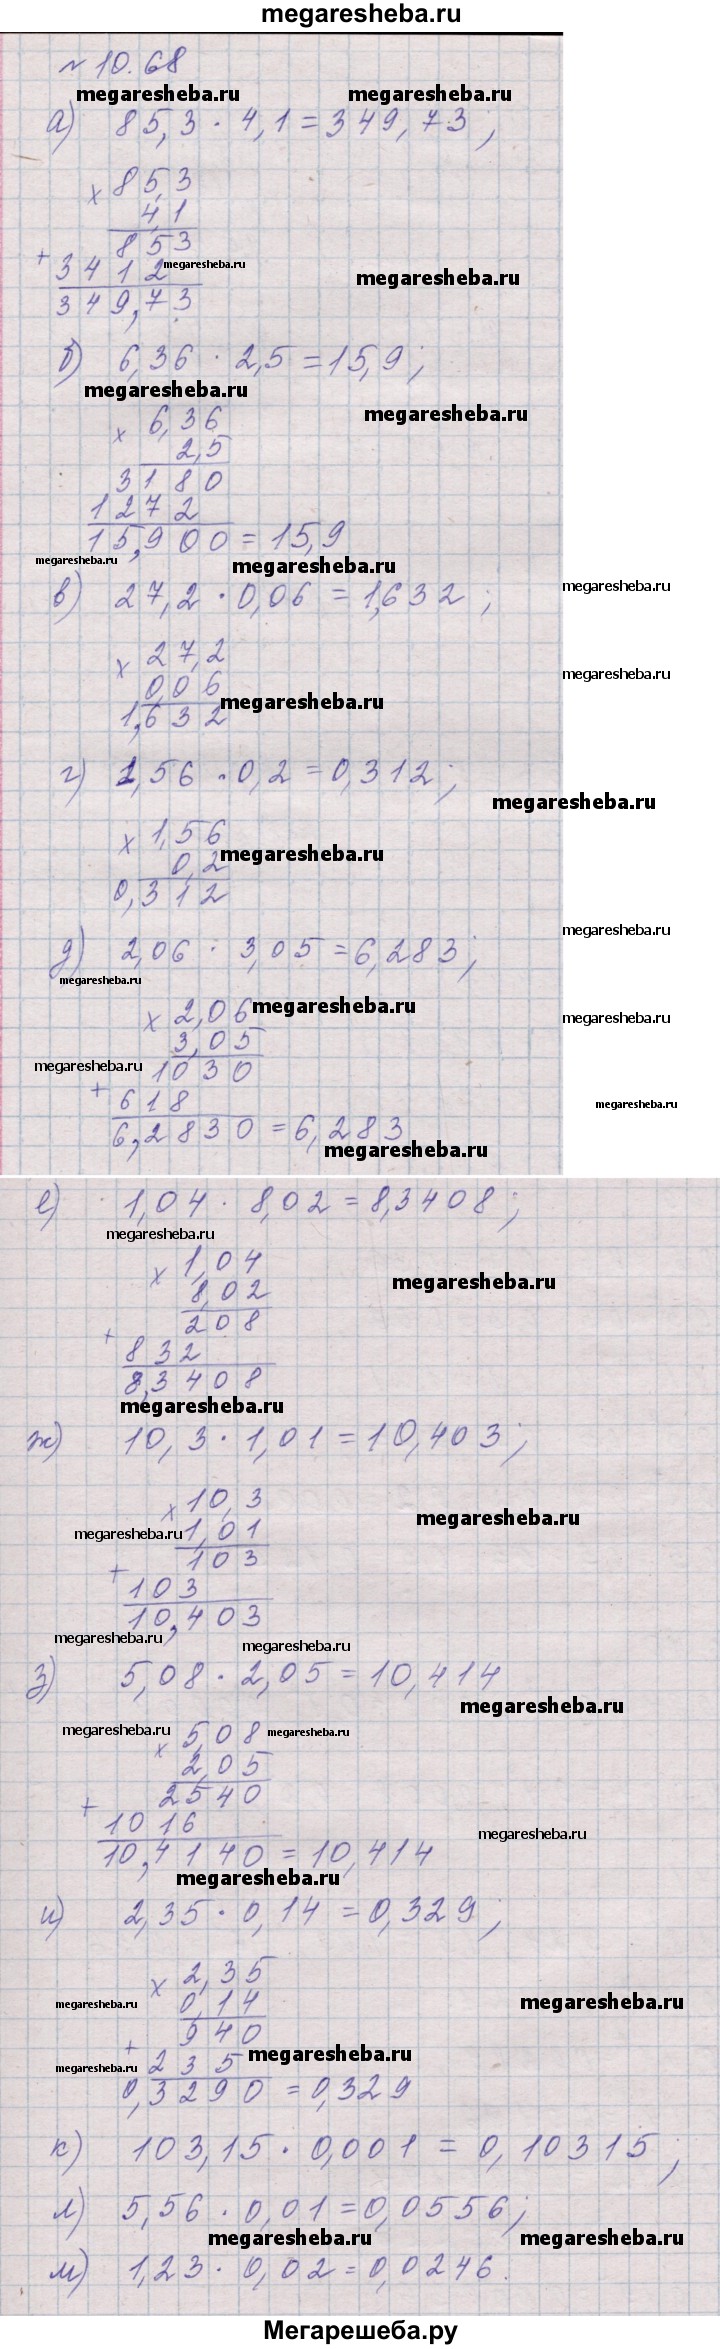 megaresheba.ru
№ 10.68
megaresheba.ru megaresheba.ru
а) 85,3 · 4,1 = 349,73;
× 85,3
4,1
853
+ 3412 megaresheba.ru
megaresheba.ru
349,73
б) 6,36 · 2,5 = 15,9;
megaresheba.ru
megaresheba.ru
× 6,36
2,5
3180
1272
15,900 = 15,9
megaresheba.ru megaresheba.ru
megaresheba.ru
в) 27,2 · 0,06 = 1,632;
× 27,2
megaresheba.ru
0,06 megaresheba.ru
1,632
г) 1,56 · 0,2 = 0,312;
megaresheba.ru
× 1,56
0,2 megaresheba.ru
0,312
megaresheba.ru
д) 2,06 · 3,05 = 6,283;
megaresheba.ru
× 2,06 megaresheba.ru
megaresheba.ru
3,05
megaresheba.ru 1030
+ 618 megaresheba.ru
6,2830 = 6,283
megaresheba.ru
е) 1,04 · 8,02 = 8,3408;
megaresheba.ru
× 1,04
megaresheba.ru
8,02
208
+ 832
8,3408
megaresheba.ru
ж) 10,3 · 1,01 = 10,403;
× 10,3
megaresheba.ru
megaresheba.ru 1,01
103
+ 103
10,403
megaresheba.ru megaresheba.ru
з) 5,08 · 2,05 = 10,414
megaresheba.ru
megaresheba.ru × 5,08 megaresheba.ru
2,05
2540
+ 1016
megaresheba.ru
10,4140 = 10,414
megaresheba.ru
и) 2,35 · 0,14 = 0,329;
× 2,35
megaresheba.ru 0,14 megaresheba.ru
940
+ 235 megaresheba.ru
megaresheba.ru
0,3290 = 0,329
к) 103,15 · 0,001 = 0,10315;
л) 5,56 · 0,01 = 0,0556;
megaresheba.ru megaresheba.ru
м) 1,23 · 0,02 = 0,0246.
Мегарешеба.ру